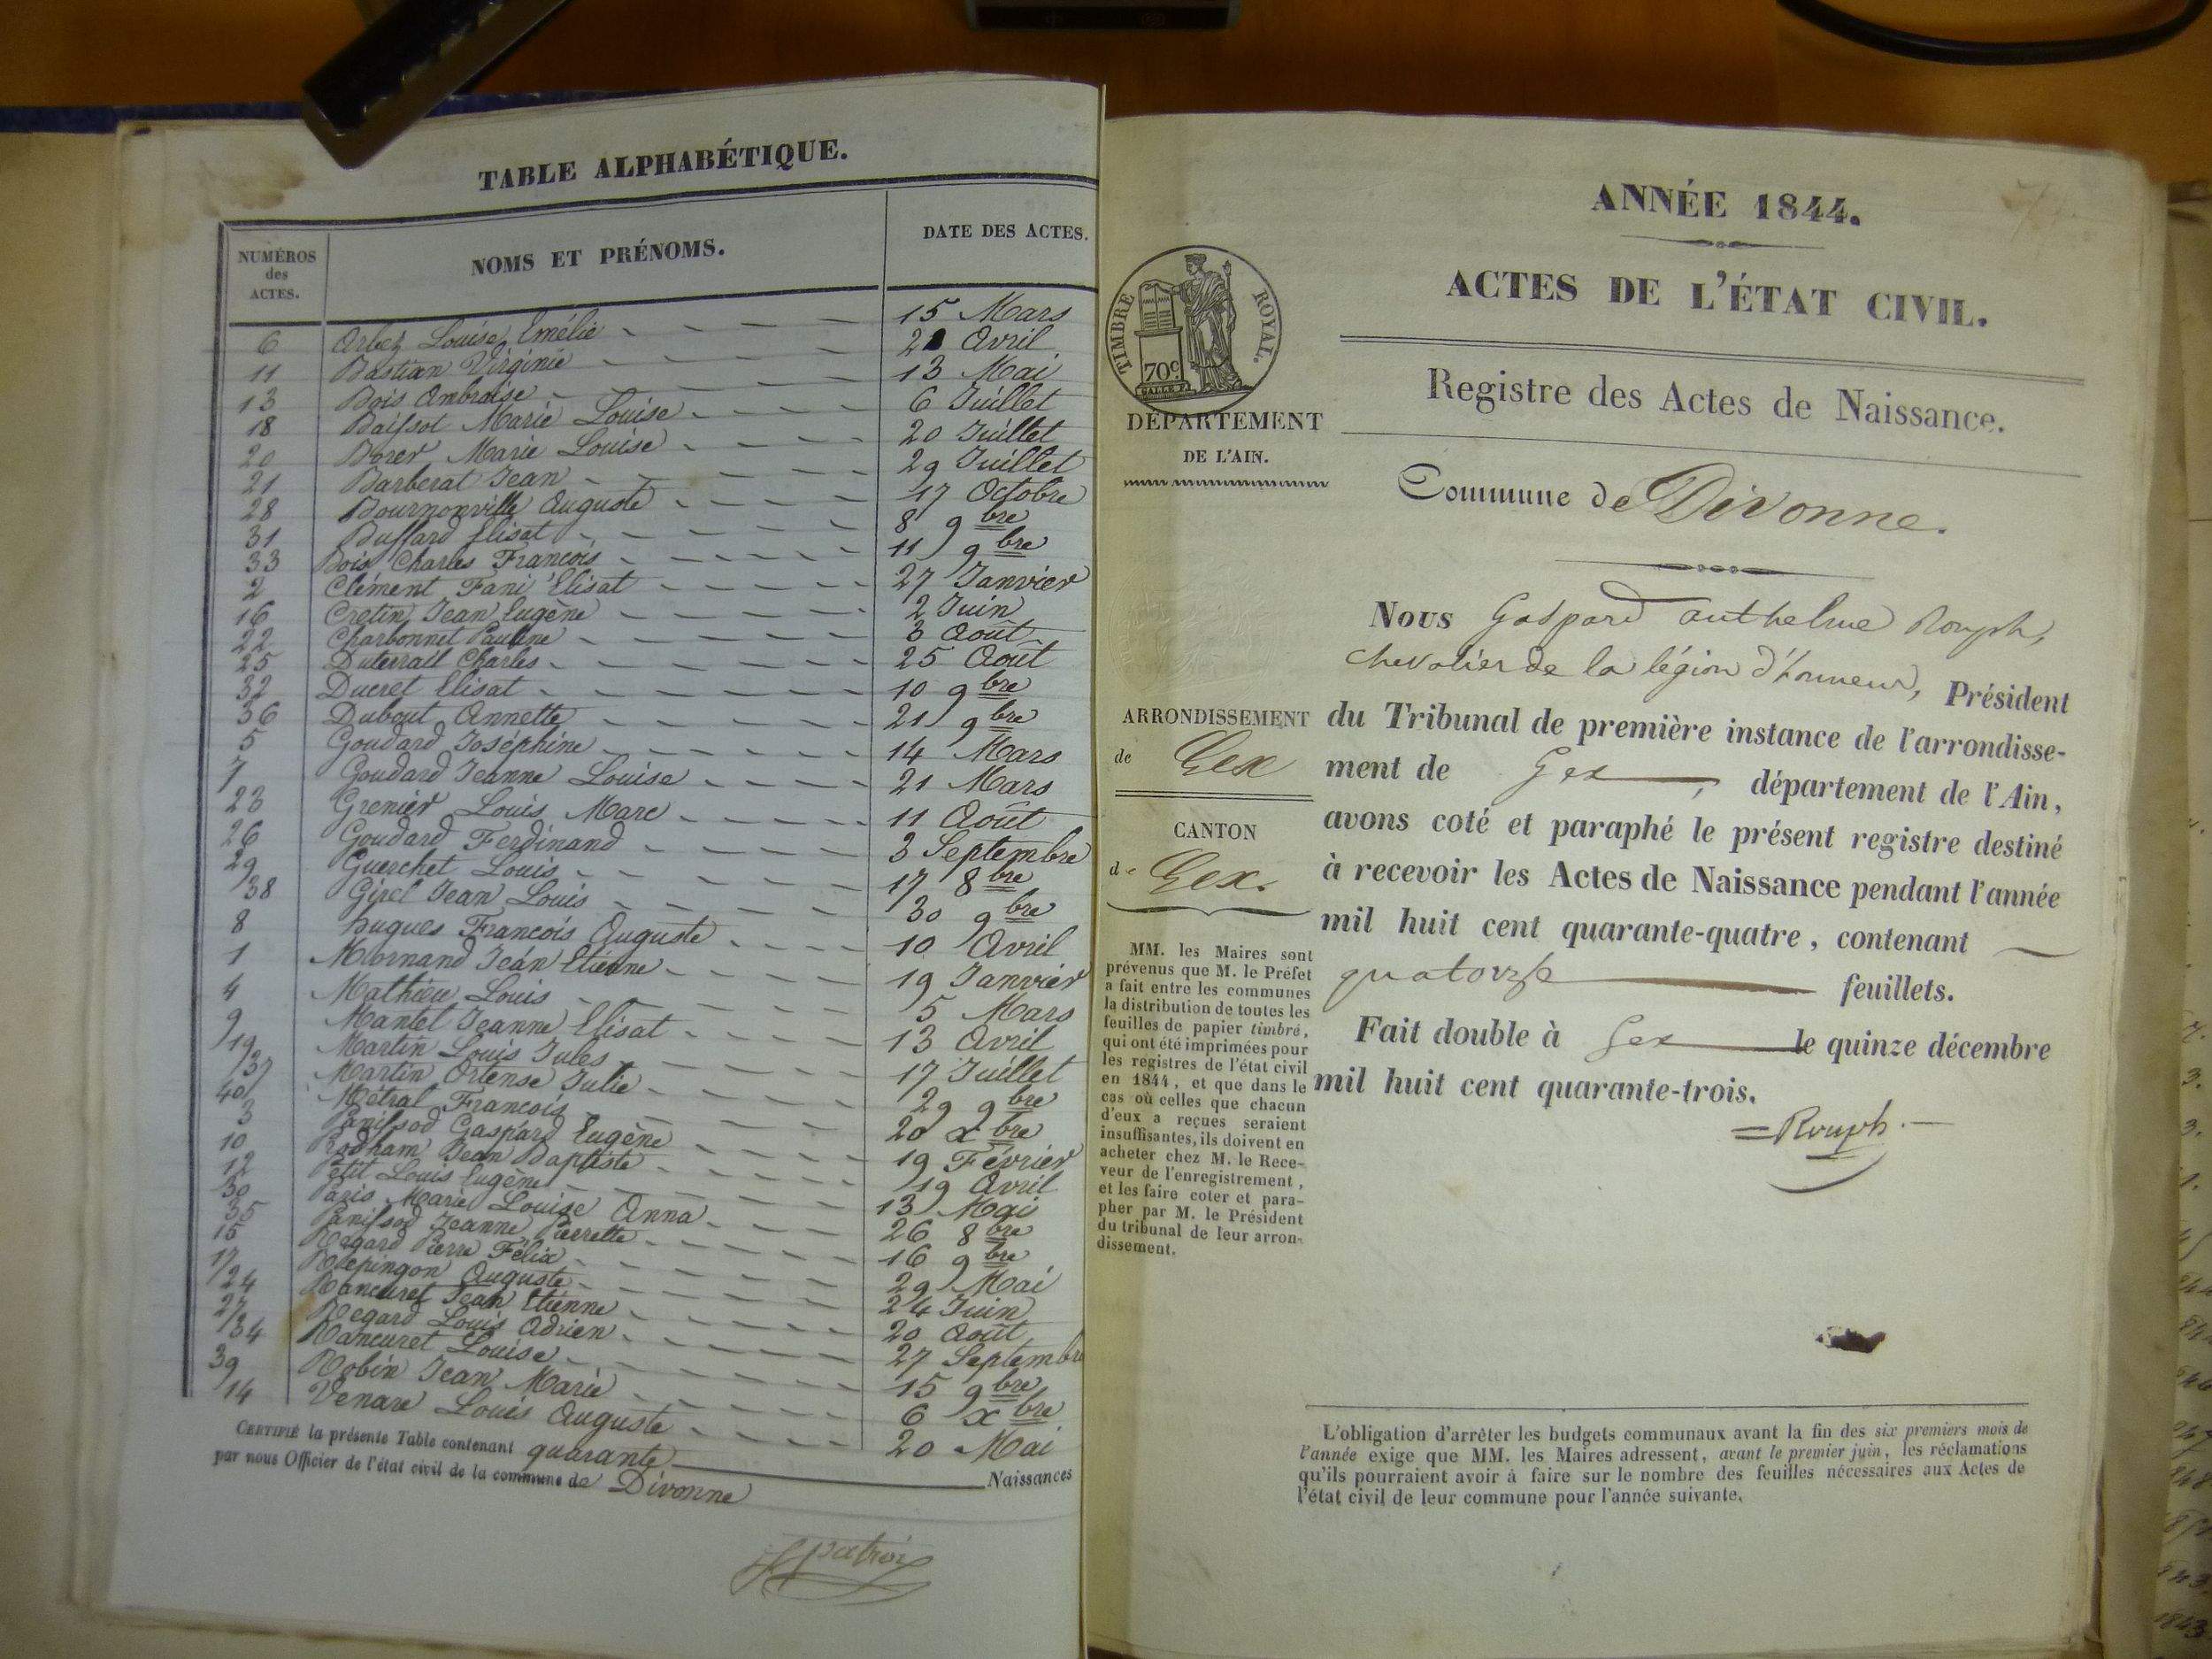 TABLE ALPHABÉTIQUE.
NUMÉROS des ACTES. NOMS ET PRÉNOMS. DATE DES ACTES.
6 Arbez Louise Emélie 15 Mars
11 Bastian Virginie 21 Avril
13 Bois Ambroise 13 Mai
18 Baissot Marie Louise 6 Juillet
20 Borer Marie Louise 20 Juillet
21 Barberat Jean 29 Juillet
28 Bournonville Auguste 17 Octobre
31 Buffard Elisat 8 9bre
33 Bois Charles François 11 9bre
2 Clément Fani Elisat 27 Janvier
16 Cretin Jean Eugène 2 Juin
22 Charbonnet Pauline 3 Août
25 Duterrail Charles 25 Août
32 Ducret Elisat 10 9bre
36 Dubout Annette 21 9bre
5 Goudard Joséphine 14 Mars
7 Goudard Jeanne Louise 21 Mars
23 Grenier Louis Marc 11 Août
26 Goudard Ferdinand 3 Septembre
29 Guerchet Louis 17 8bre
38 Girel Jean Louis 30 9bre
8 hugues François Auguste 10 Avril
1 Mornand Jean Etienne 19 Janvier
4 Mathieu Louis 5 Mars
9 Mantel Jeanne Elisat 13 Avril
19 Martin Louis Jules 17 Juillet
37 Martin Ortense Julie 29 9bre
40 Métral François 20 xbre
3 Panissod Gaspard Eugène 19 Février
10 Prodham Jean Baptiste 19 Avril
12 Petit Louis Eugène 13 Mai
30 Paris Marie Louise Anna 26 8bre
35 Panissod Jeanne Pierrette 16 9bre
15 Regard Pierre Félix 29 Mai
17 Repingon Auguste 24 Juin
24 Rancuret Jean Etienne 20 Août
27 Regard Louis Adrien 27 Septembre
34 Rancuret Louise 15 9bre
39 Robin Jean Marie 6 xbre
14 Venare Louis Auguste 20 Mai
CERTIFIÉ la présente Table contenant quarante Naissances
par nous Officier de l'état civil de la commune de Divonne
ANNÉE 1844.
ACTES DE L'ÉTAT CIVIL.
Registre des Actes de Naissance.
TIMBRE ROYAL.
70c
DÉPARTEMENT
DE L'AIN.
Commune de Divonne.
ARRONDISSEMENT
de Gex
CANTON
de Gex.
MM. les Maires sont
prévenus que M. le Préfet
a fait entre les communes
la distribution de toutes les
feuilles de papier timbré,
qui ont été imprimées pour
les registres de l'état civil
en 1844, et que dans le
cas où celles que chacun
d'eux a reçues seraient
insuffisantes, ils doivent en
acheter chez M. le Rece-
veur de l'enregistrement,
et les faire coter et para-
pher par M. le Président
du tribunal de leur arron-
dissement.
Nous Gaspard anthelme Rouph,
chevalier de la légion d'honneur, Président
du Tribunal de première instance de l'arrondisse-
ment de Gex, département de l'Ain,
avons coté et paraphé le présent registre destiné
à recevoir les Actes de Naissance pendant l'année
mil huit cent quarante-quatre, contenant
quatorze feuillets.
Fait double à Gex le quinze décembre
mil huit cent quarante-trois.
Rouph
L'obligation d'arrêter les budgets communaux avant la fin des six premiers mois de
l'année exige que MM. les Maires adressent, avant le premier juin, les réclamations
qu'ils pourraient avoir à faire sur le nombre des feuilles nécessaires aux Actes de
l'état civil de leur commune pour l'année suivante.